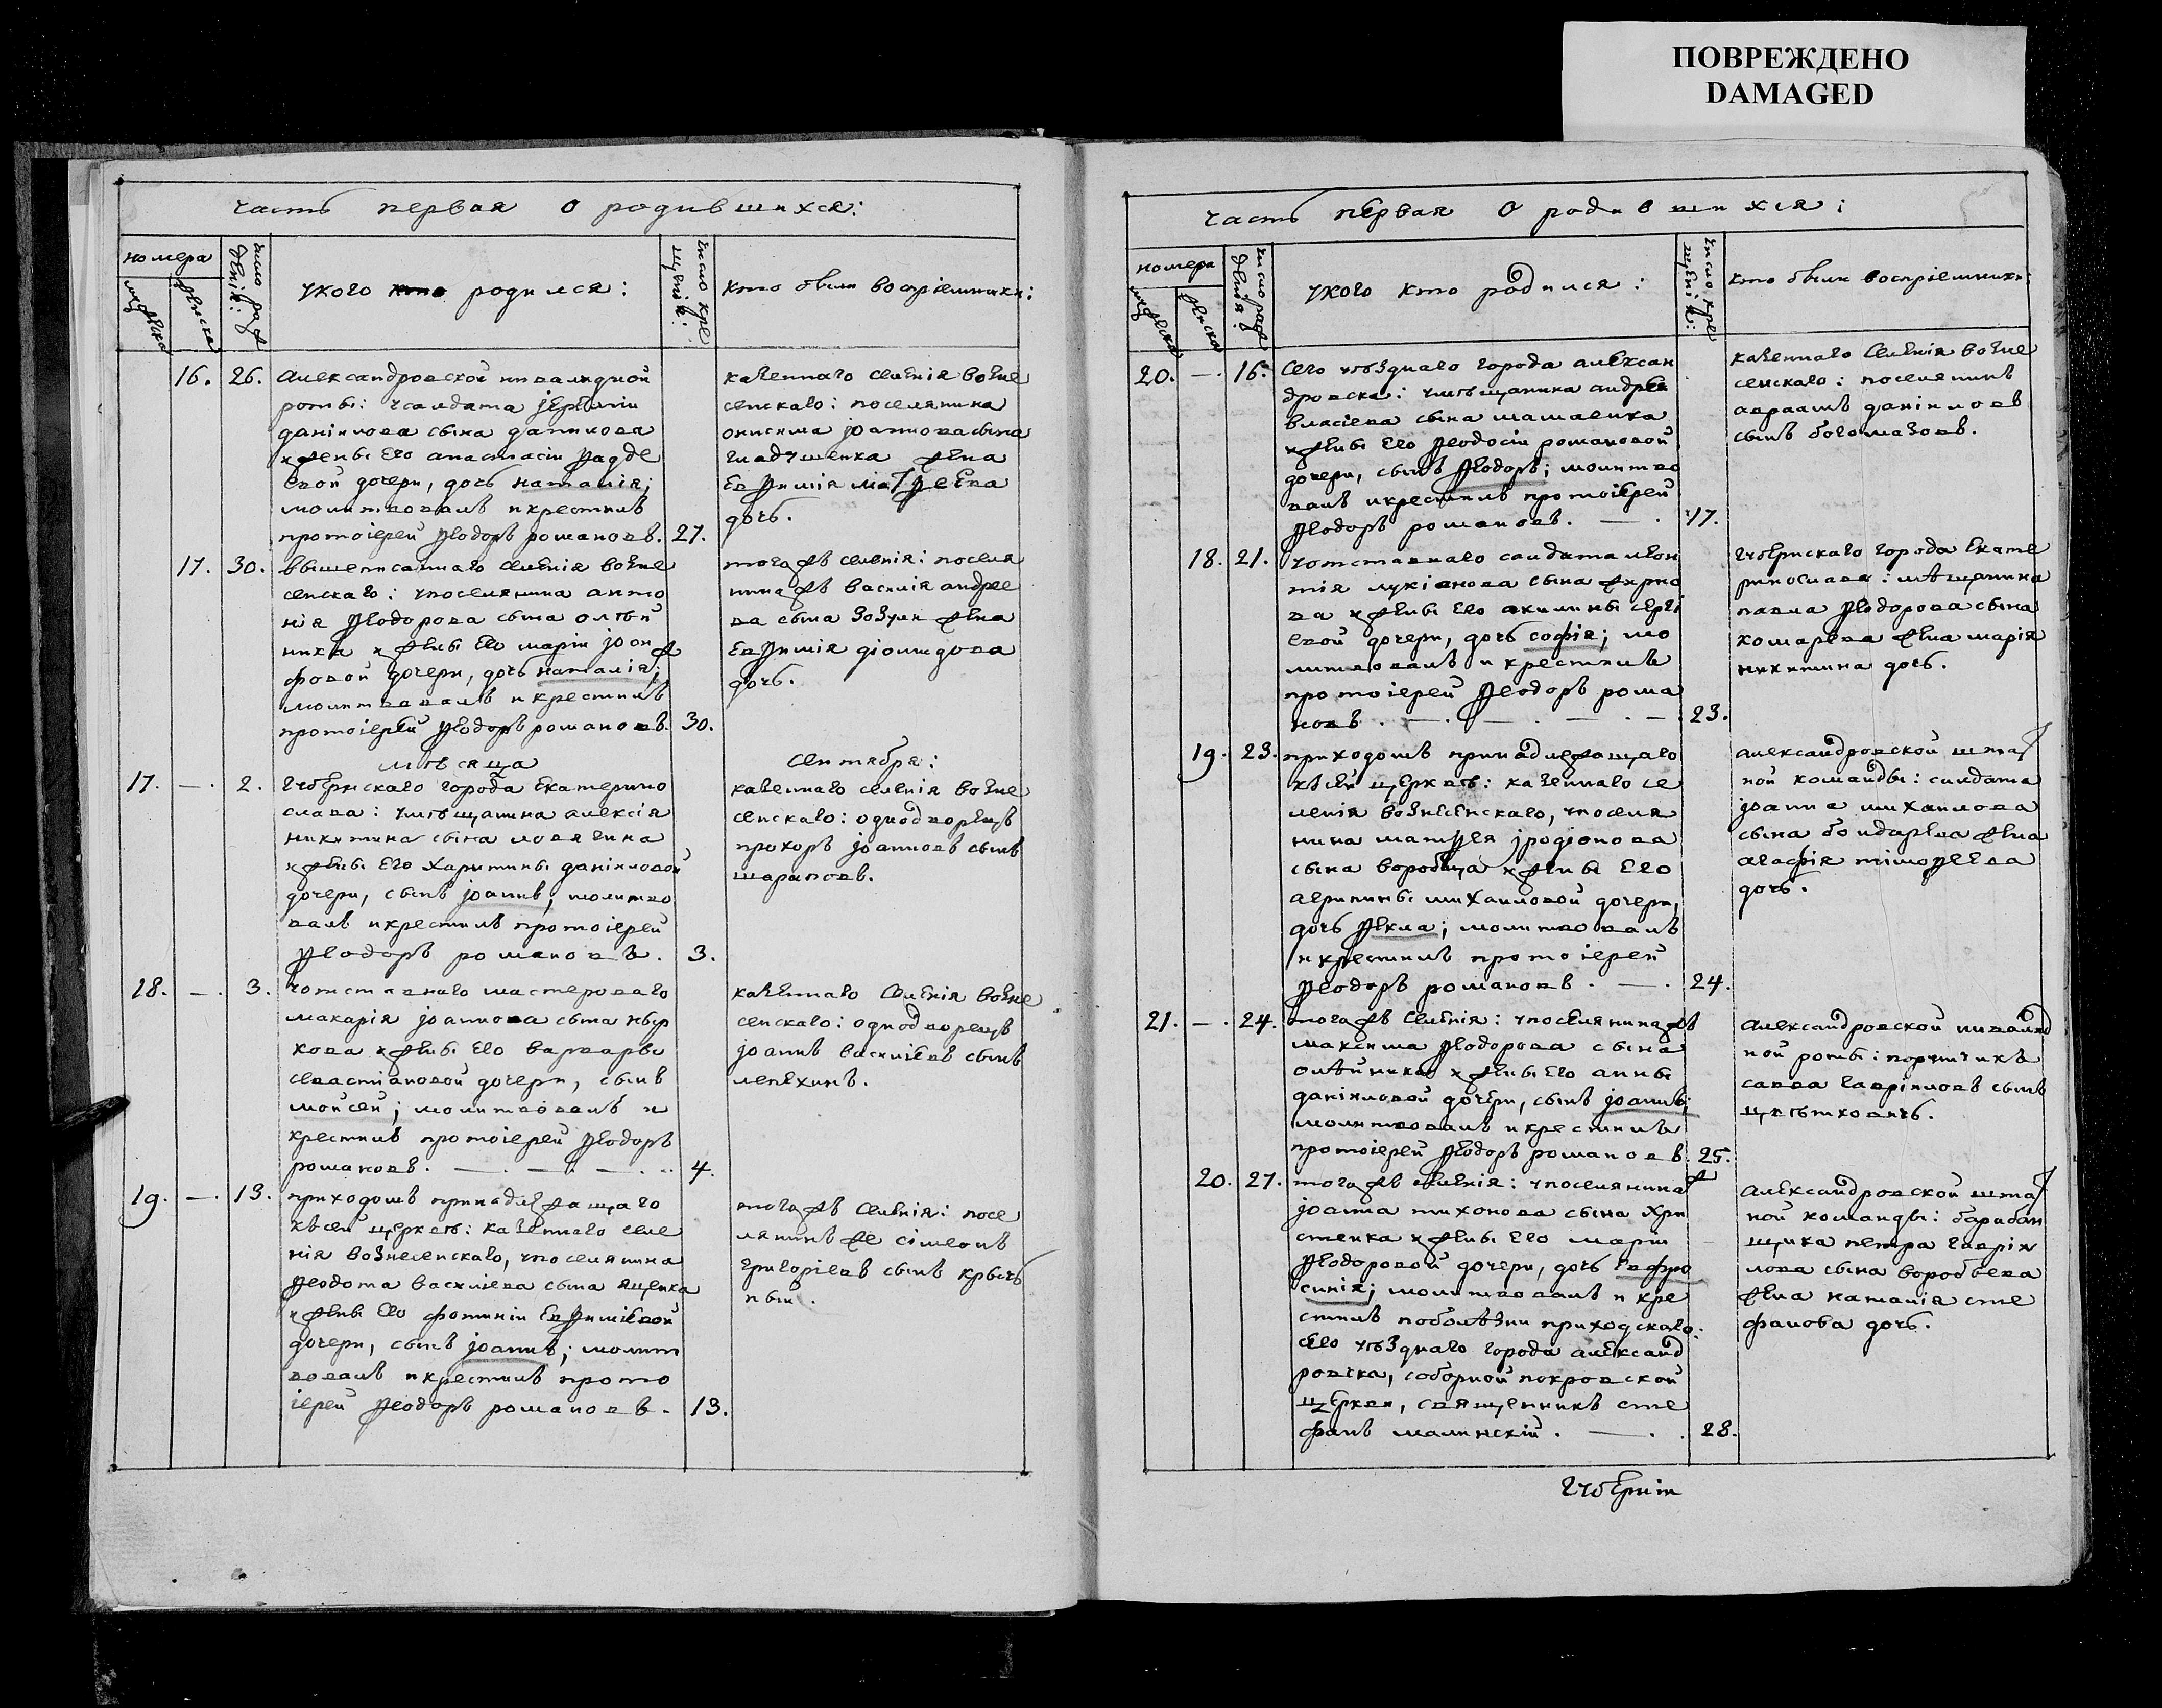 ПОВРЕЖДЕНО
DAMAGED
часть первая о родившихся:
номера
мужеска
женска
число рож
денія:
укого кто родился:
число кре
щенія:
кто были воспріемники:
16. 26. александровской инвалидной
роты: усалдата іереміи
даніилова сына даникова
ижены его анастасіи
евой дочери, дочь наталія;
молитвовалъ икрестилъ
протоіерей Ѳеодоръ романовъ. 27.
казеннаго селенія возне
сенскаго: поселянина
онисима іоаннова сына
гладчшенка жена
евѲимія матѲеева
дочь.
17. 30. ввышеписаннаго селенія возне
сенскаго: упоселянина анто
нія Ѳеодорова сына олѣй
ника ижены его маріи іоси
фовой дочери, дочь наталія;
молитвовалъ икрестилъ
протоіерей Ѳеодоръ романовъ. 30.
тогожъ селенія: поселя
нинажъ василія андрее
ва сына зозули жена
евѲимія діомидова
дочь.
мѣсяца сентября:
17. — . 2. губернскаго города екатерино
слава: умѣщанина алексія
никитина сына ловягина
ижены его харитины даніиловой
дочери, сынъ іоаннъ; молитво
валъ икрестилъ протоіерей
Ѳеодоръ романовъ. 3.
казеннаго селенія возне
сенскаго: однодворецъ
прохоръ іоанновъ сынъ
шараповъ.
18. — . 3. уотставнаго мастероваго
макарія іоаннова сына
кова ижены его варвары
севастіановой дочери, сынъ
мойсей; молитвовалъ и
крестилъ протоіерей Ѳеодоръ
романовъ. — . — . — . 4.
казеннаго селенія возне
сенскаго: однодворецъ
іоаннъ василіевъ сынъ
лепехинъ.
19. — . 13. приходомъ принадлежащаго
ксей церквѣ: казеннаго селе
нія вознесенскаго, упоселянина
Ѳеодота василіева сына яценка
ижены его фотиніи евѲиміевой
дочери, сынъ іоаннъ; молит
вовалъ икрестилъ прото
іерей Ѳеодоръ романовъ. 13.
тогожъ селенія: посе
лянинъ же сімеонъ
григоріевъ сынъ
часть первая о родившихся:
номера
мужеска
женска
число рож
денія:
укого кто родился:
число кре
щенія:
кто были воспріемники:
20. — . 16. сего уѣзднаго города алексан
дровска: умѣщанина андрея
власіева сына мамаенка
ижены его Ѳеодосіи романовой
дочери, сынъ Ѳеодоръ; молитво
валъ икрестилъ протоіерей
Ѳеодоръ романовъ. — . 17.
казеннаго селенія возне
сенскаго: поселянинъ
авраамъ даніиловъ
сынъ богомазовъ.
18. 21. уотставнаго салдата леон
тія лукіанова сына жирно
ва ижены его акилины сергі
евой дочери, дочь софія; мо
литвовалъ и крестилъ
протоіерей Ѳеодоръ рома
новъ. — . — . — . — 23.
губернскаго города екате
ринослава: мѣщанина
павла Ѳеодорова сына
комарева жена марія
никитина дочь.
19. 23. приходомъ принадлежащаго
ксей церквѣ: казеннаго се
ленія вознесенскаго, упоселя
нина матѲея іродіонова
сына воробца ижены его
агрипины михаиловой дочери,
дочь Ѳекла; молитвовалъ
икрестилъ протоіерей
Ѳеодоръ романовъ. — . 24.
александровской штат
ной команды: салдата
іоанна михаилова
сына бондарева жена
агафія тімоѲеева
дочь.
21. — . 24. тогожъ селенія: упоселянинажъ
максима Ѳеодорова сына
олѣйника ижены его анны
даніиловой дочери, сынъ іоаннъ;
молитвовалъ икрестилъ
протоіерей Ѳеодоръ романовъ. 25.
александровской инвалид
ной роты: порутчикъ
савва гавріиловъ сынъ
цвѣтковичъ.
20. 27. тогожъ селенія: упоселянинажъ
іоанна тихонова сына хри
стенка ижены его маріи
Ѳеодоровой дочери, дочь евфро
синія; молитвовалъ и кре
стилъ поболѣзни приходскаго:
сего уѣзднаго города александ
ровска, соборной покровской
церкви, священникъ сте
фанъ малинскій. — . 28.
александровской штат
ной команды: барабан
щика петра гавріи
лова сына воробьева
жена наталія сте
фанова дочь.
губерніи